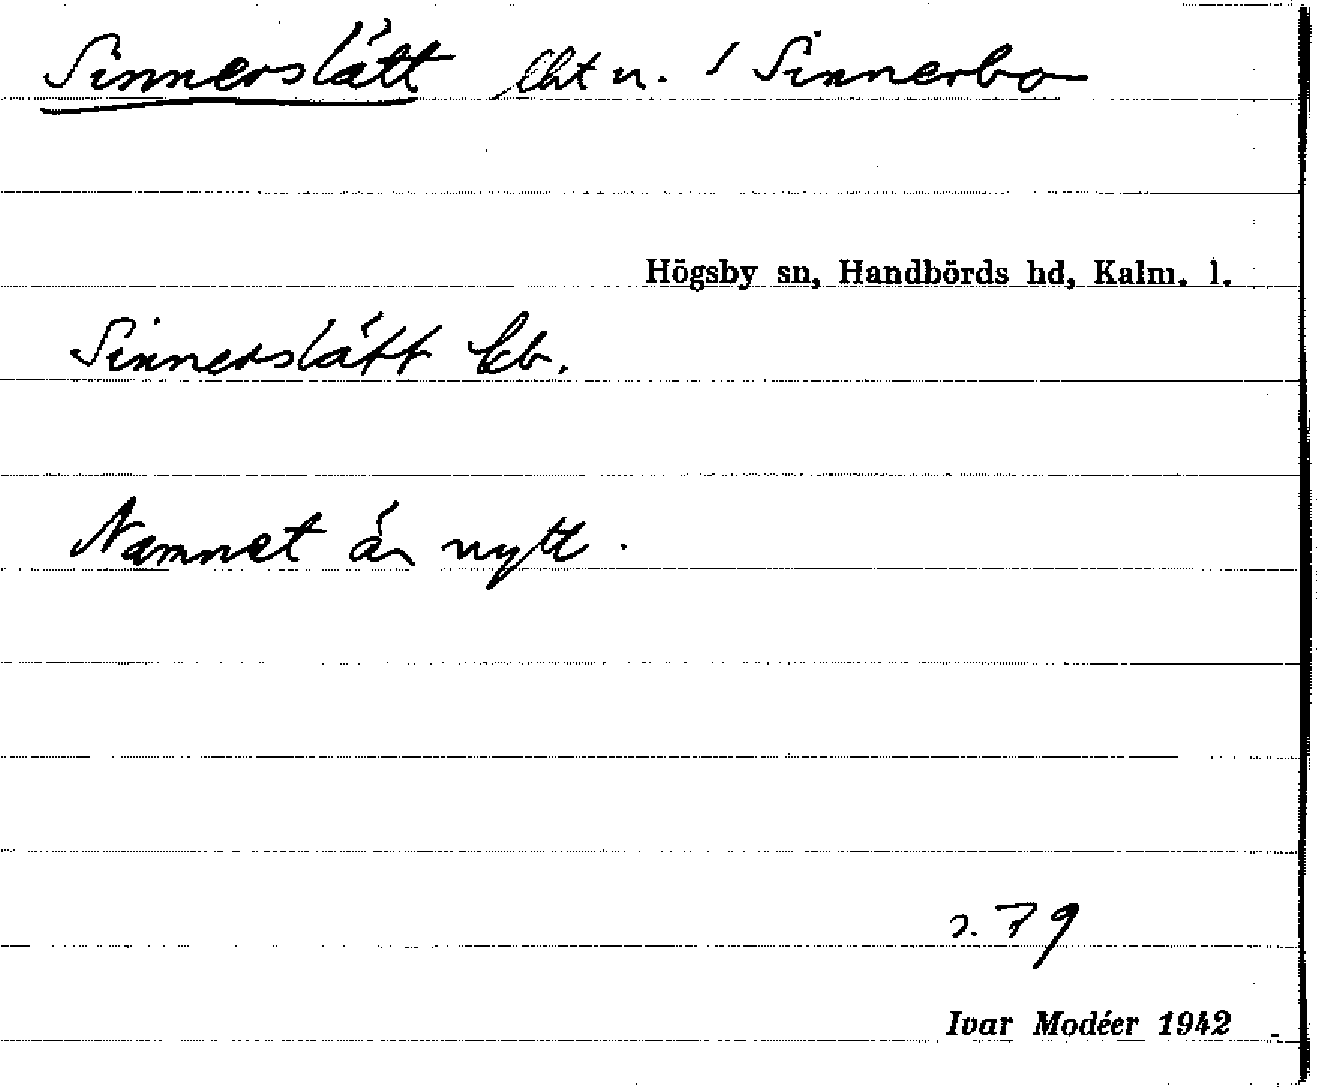 Sinnerslätt lht u. / Sinnerbo
Högsby sn, Handbörds hd, Kalm. l.
Sinnerslätt Eb.
Namnet är nytt.
s. 79
Ivar Modéer 1942